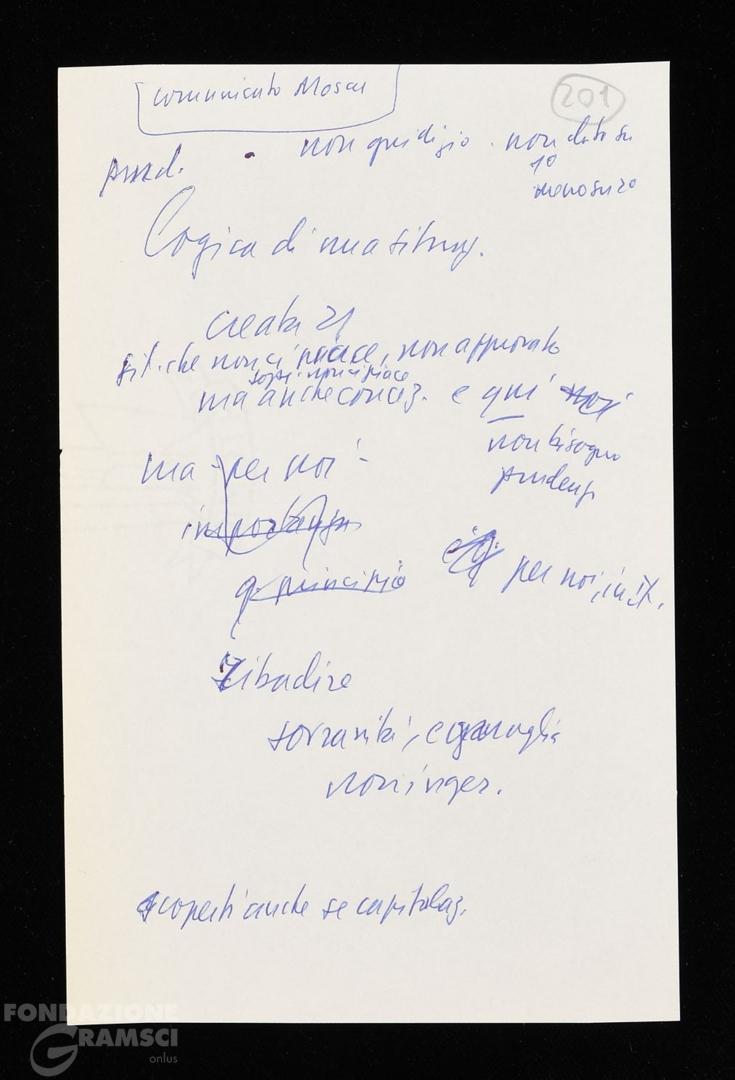 comunicato Mosca
201
prud. • non giudizio. non dato su
1°
meno su 2°
Logica di una situaz.
creata 21
sit. che non ci piace, non approvato
sopr. non ci piace
ma anche conseg. e qui noi
non bisogno
prudenza
ma - per noi -
importanza
q. principio per noi, in it.
ribadire
sovranità, eguaglia
non inger.
scoperti anche se capitolaz.
FONDAZIONE
GRAMSCI
onlus